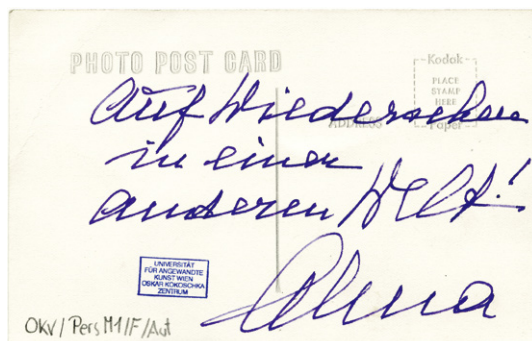 PHOTO POST CARD
Kodak
PLACE
STAMP
HERE
Paper
ADDRESS
Auf Wiedersehen
in einer
anderen Welt!
Alma
UNIVERSITÄT
FÜR ANGEWANDTE
KUNST WIEN
OSKAR KOKOSCHKA
ZENTRUM
OKV/Pers M1/F/Aut